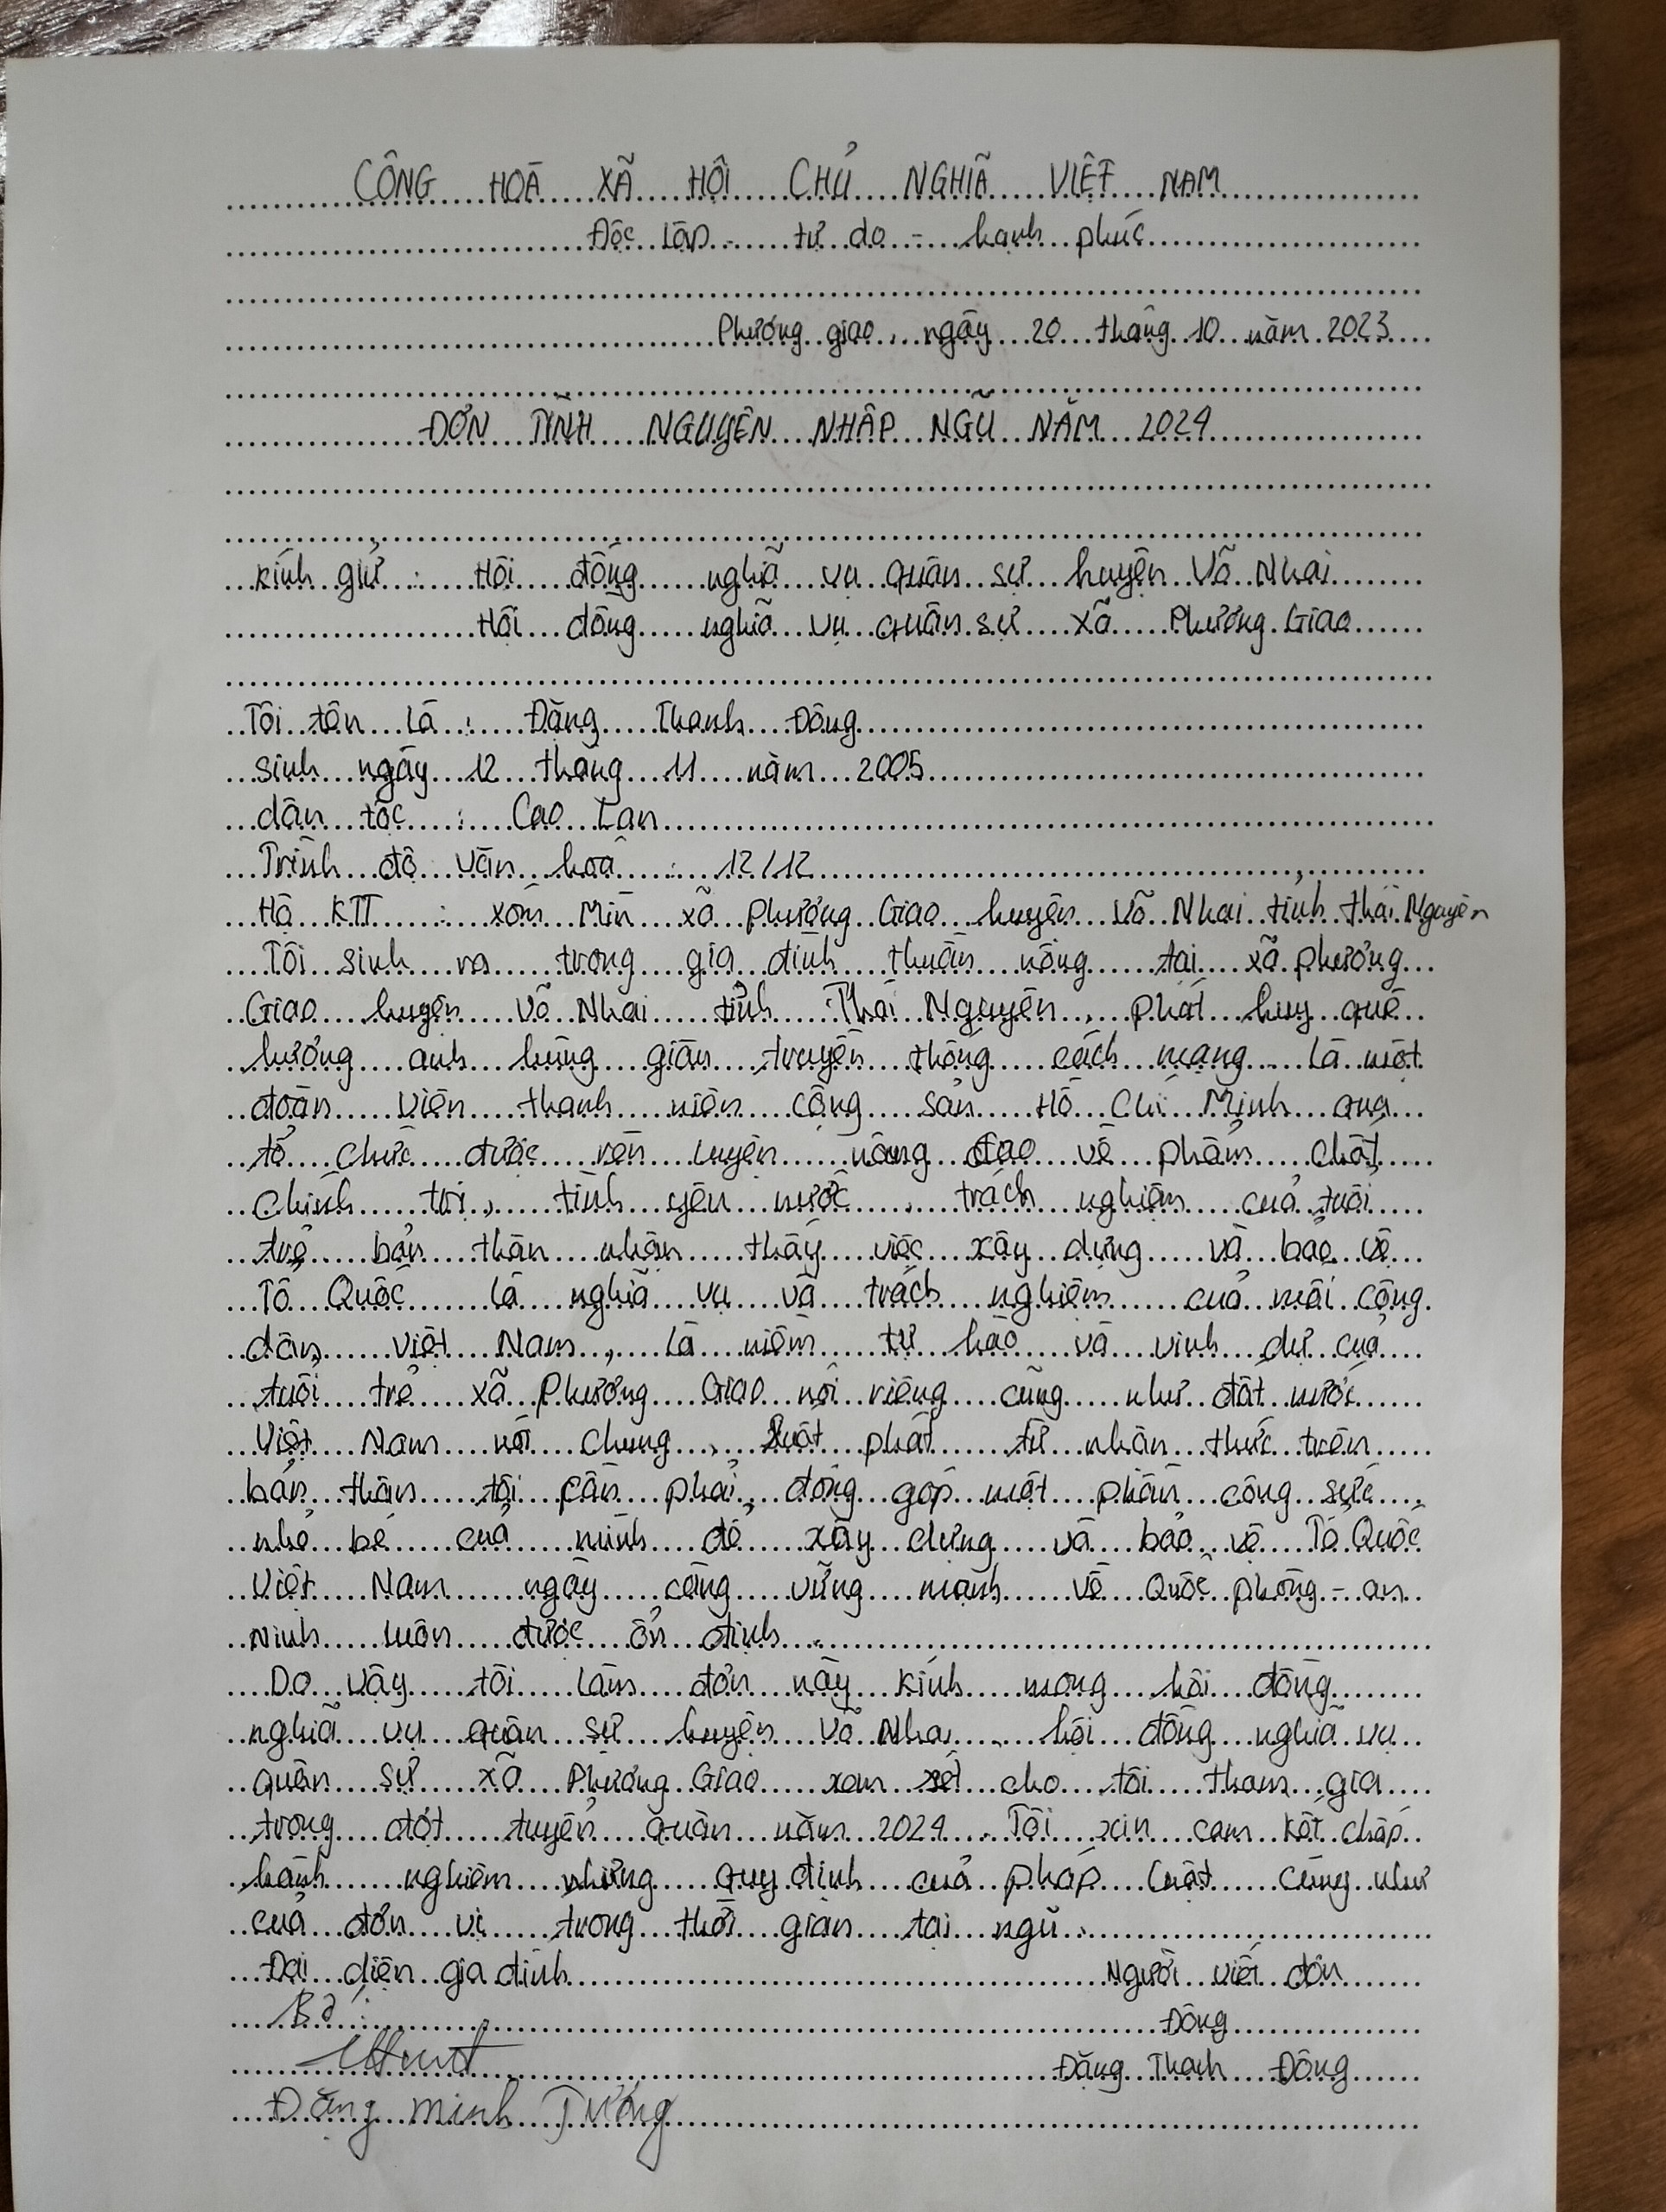 CÔNG HOÀ XÃ HỘI CHỦ NGHĨA VIỆT NAM
Độc lập - tự do - hạnh phúc
Phương giao, ngày 20 tháng 10 năm 2023
ĐƠN TÌNH NGUYỆN NHẬP NGŨ NĂM 2024
kính gửi : Hội đồng nghĩa vụ quân sự huyện Võ Nhai
Hội đồng nghĩa vụ quân sự xã Phương Giao
Tôi tên là : Đặng Thanh Đông
sinh ngày 12 tháng 11 năm 2005
dân tộc : Cao Lan
Trình độ văn hoá : 12/12
Hộ KTT : xóm Mìn xã Phương Giao huyện Võ Nhai tỉnh thái Nguyên
Tôi sinh ra trong gia đình thuần nông tại xã phương
Giao huyện Võ Nhai tỉnh Thái Nguyên, phát huy quê
hương anh hùng giàn truyền thống cách mạng là một
đoàn viên thanh niên cộng sản Hồ Chí Minh qua
tổ chức được rèn luyện nâng cao về phẩm chất
chính trị, tình yên nước, trách nghiệm của tuổi
trẻ bản thân nhận thấy việc xây dựng và bảo vệ
Tổ Quốc là nghĩa vụ và trách nghiệm của mỗi công
dân việt Nam, là niềm tự hào và vinh dự của
tuổi trẻ xã Phương Giao nói riêng cũng như đất nước
Việt Nam nói chung, Xuất phát từ nhận thức trên
bản thân tôi cần phải đóng góp một phần công sức
nhỏ bé của mình để xây dựng và bảo vệ Tổ Quốc
Việt Nam ngày càng vững mạnh về Quốc phòng - an
Ninh luôn được ổn định.
Do vậy tôi làm đơn này kính mong hội đồng
nghĩa vụ quân sự huyện Võ Nhai, hội đồng nghĩa vụ
quân sự xã Phương Giao xem xét cho tôi tham gia
trong đợt tuyển quân năm 2024. Tôi xin cam kết chấp
hành nghiêm những quy định của pháp luật cũng như
của đơn vị trong thời gian tại ngũ.
Đại diện gia đình Người viết đơn
Bố : Đông
Đặng Thanh Đông
Đặng Minh Tường